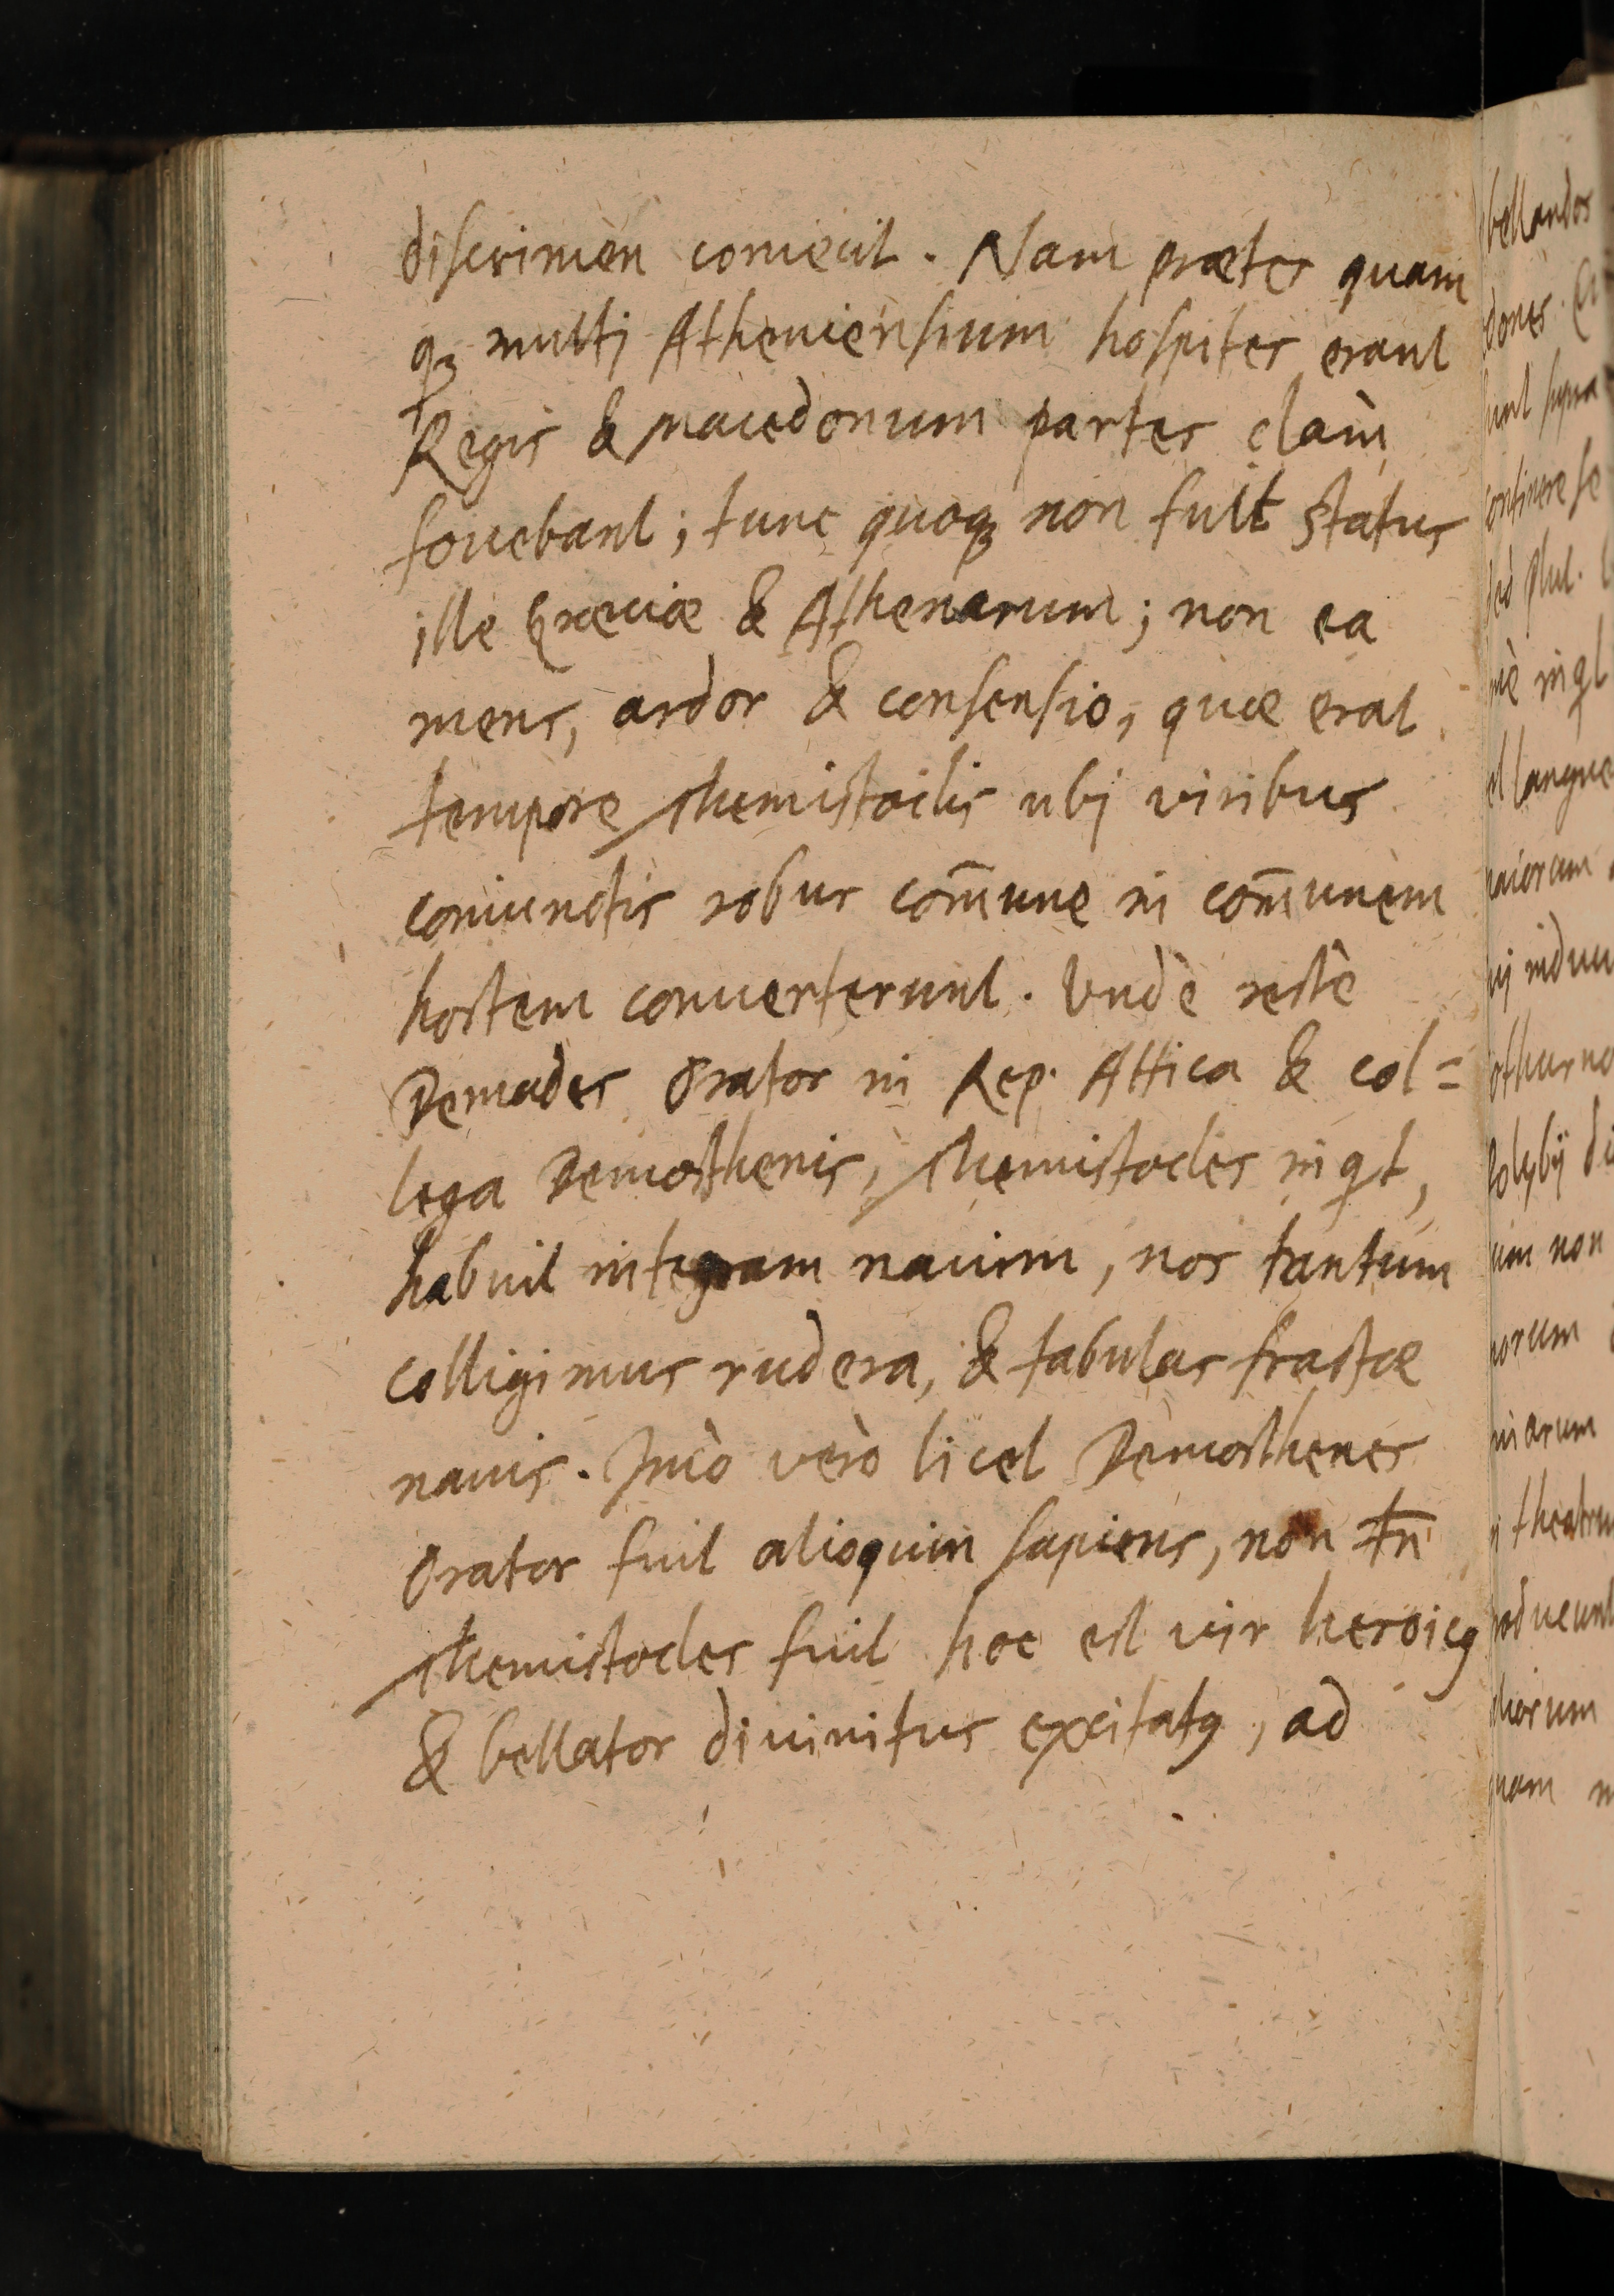 discrimen coniecit. Nam præter quam
qꝫ multj Atheniensium hospites erant
Regis & Macedonum partes clàm
fouebant; tunc quoqꝫ non fuit status
ille Græciæ & Athenarum; non ea
mens, ardor & consensio, quæ erat
tempore Themistoclis ubj viribus
coniunctis robur com̄une in com̄unem
hostem conuerterunt. Vndè rectè
Demades Orator in Rep. Attica & col=
lega Demosthenis, Themistocles inqt,
habuit integram nauim, nos tantum
colligimus rudera, & tabulas fractæ
nauis. Imò verò licet Demosthenes
Orator fuit alioquin sapiens, non tn̄
Themistocles fuit hoc est vir heroicꝰ
& bellator diuinitus excitatꝰ, ad
bellandos
dones
continere se
langue
maiorum
induu
othurno
Polybij di
um non
orum
niarum
theatru
adueunt
quam